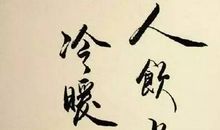 人飲
冷暖